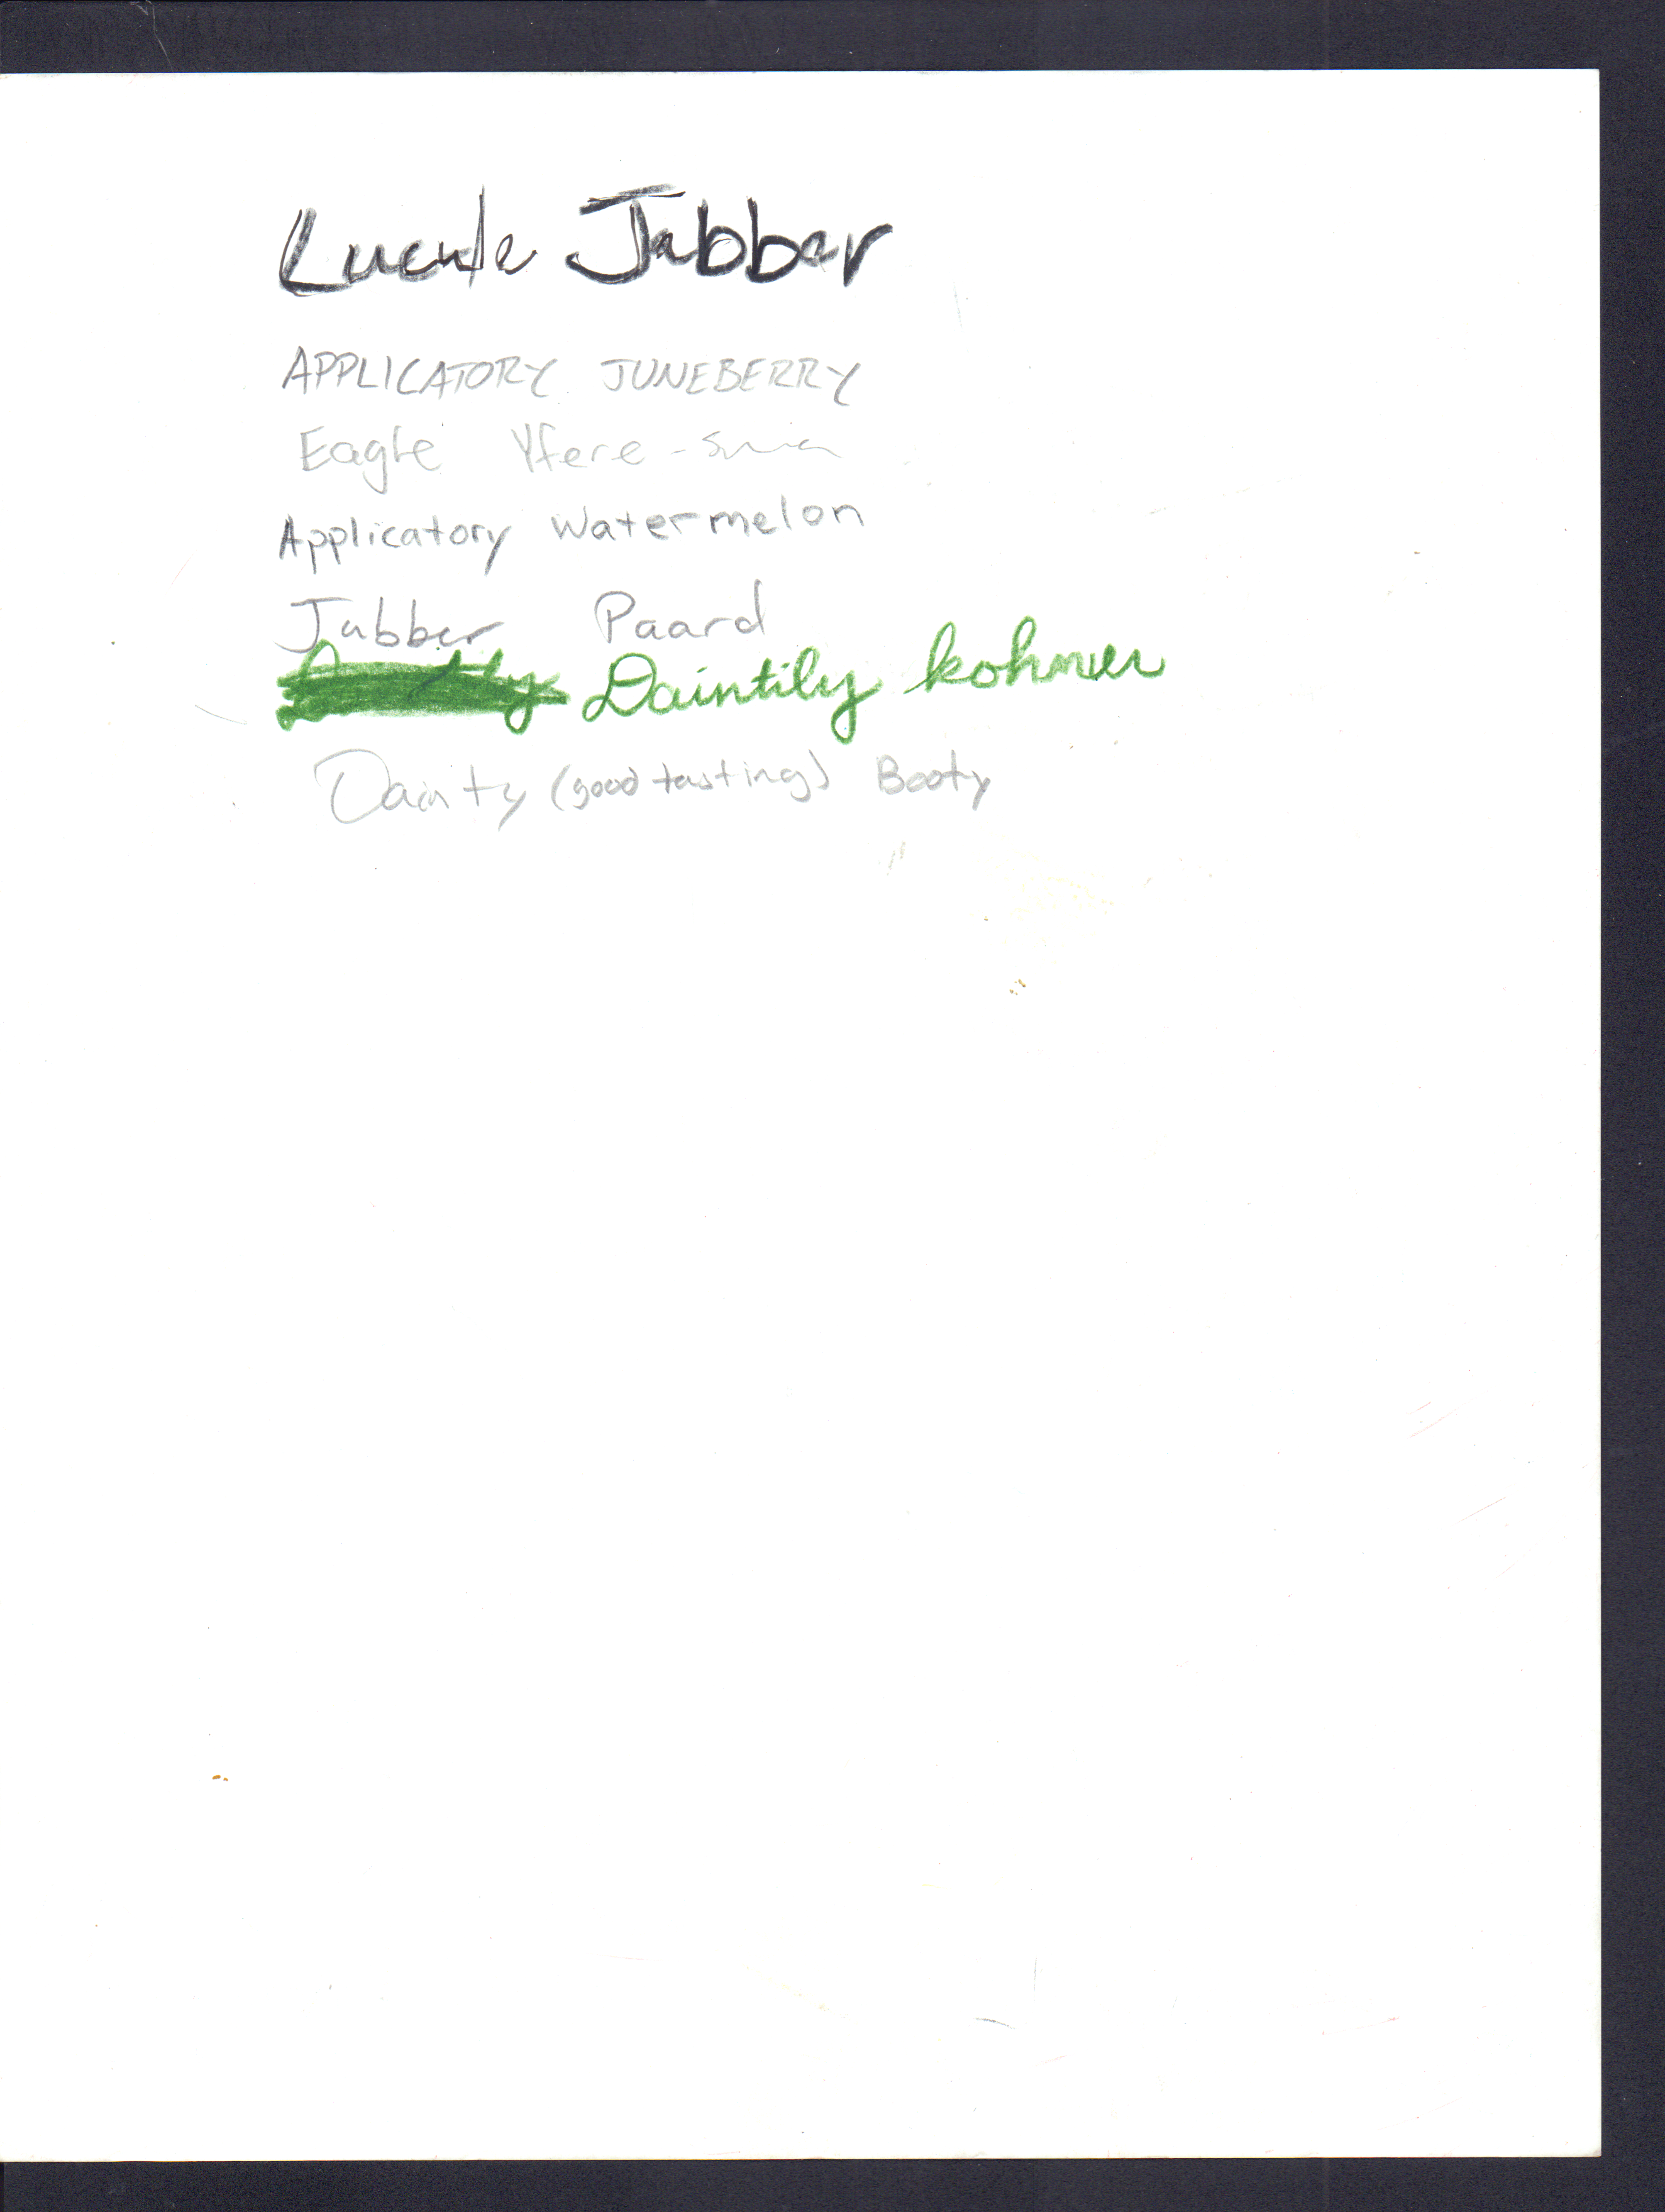 Jabber
APPLICATORY JUNEBERRY
Eagle Yfere
Applicatory Watermelon
Jabber Paard
Daintily
Dainty (good tasting) Booty